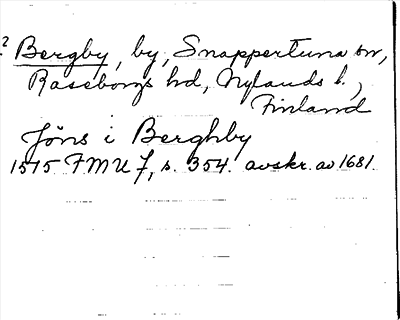 ? Bergby, by, Snappertuna sn,
Raseborgs hd, Nylands l.,
Finland
Jöns i Berghby
1515 FMU 7, s. 354. avskr. av 1681.